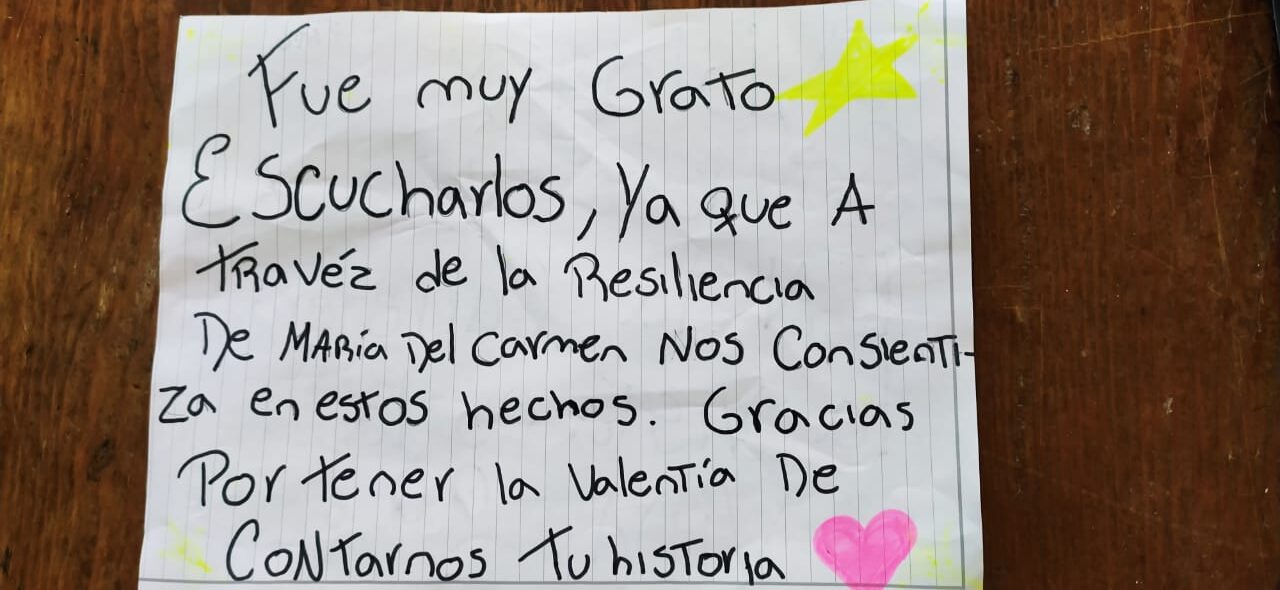 Fue muy Grato
Escucharlos, Ya que A
travéz de la Resiliencia
De María Del Carmen Nos Consienti-
za en estos hechos. Gracias
Por tener la Valentía De
Contarnos tu historia